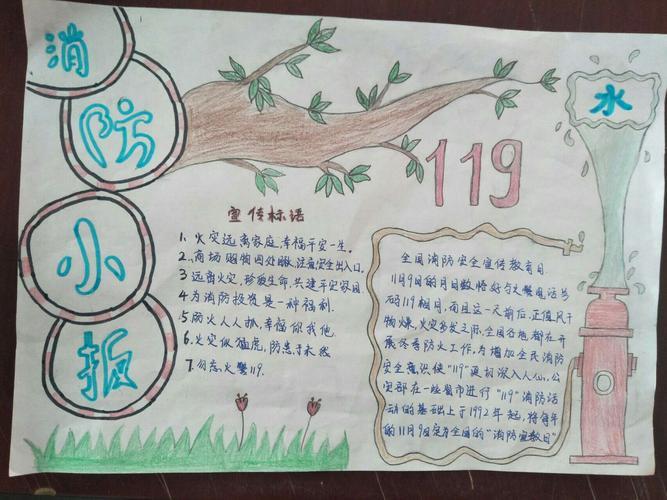 消
防
小
报
水
119
宣传标语
1、火灾远离家庭,幸福平安一生。
2、商场购物四处瞅,注意安全出入口.
3、远离火灾,珍爱生命,共建平安家园.
4、为消防投资是一种福利.
5、防火人人抓,幸福你我他.
6、火灾似猛虎,防患于未然
7、勿忘火警119.
全国消防安全宣传教育日.
11月9日的月日数恰好与火警电话号
码119相同,而且这一天前后,正值风干
物燥,火灾多发之际,全国各地都在开
展冬季防火工作,为增加全民消防
安全意识使"119"更加深入人心,公
安部在一些省市进行"119"消防活
动的基础上于1992年起,将每年
的11月9日定为全国的"消防宣教日"